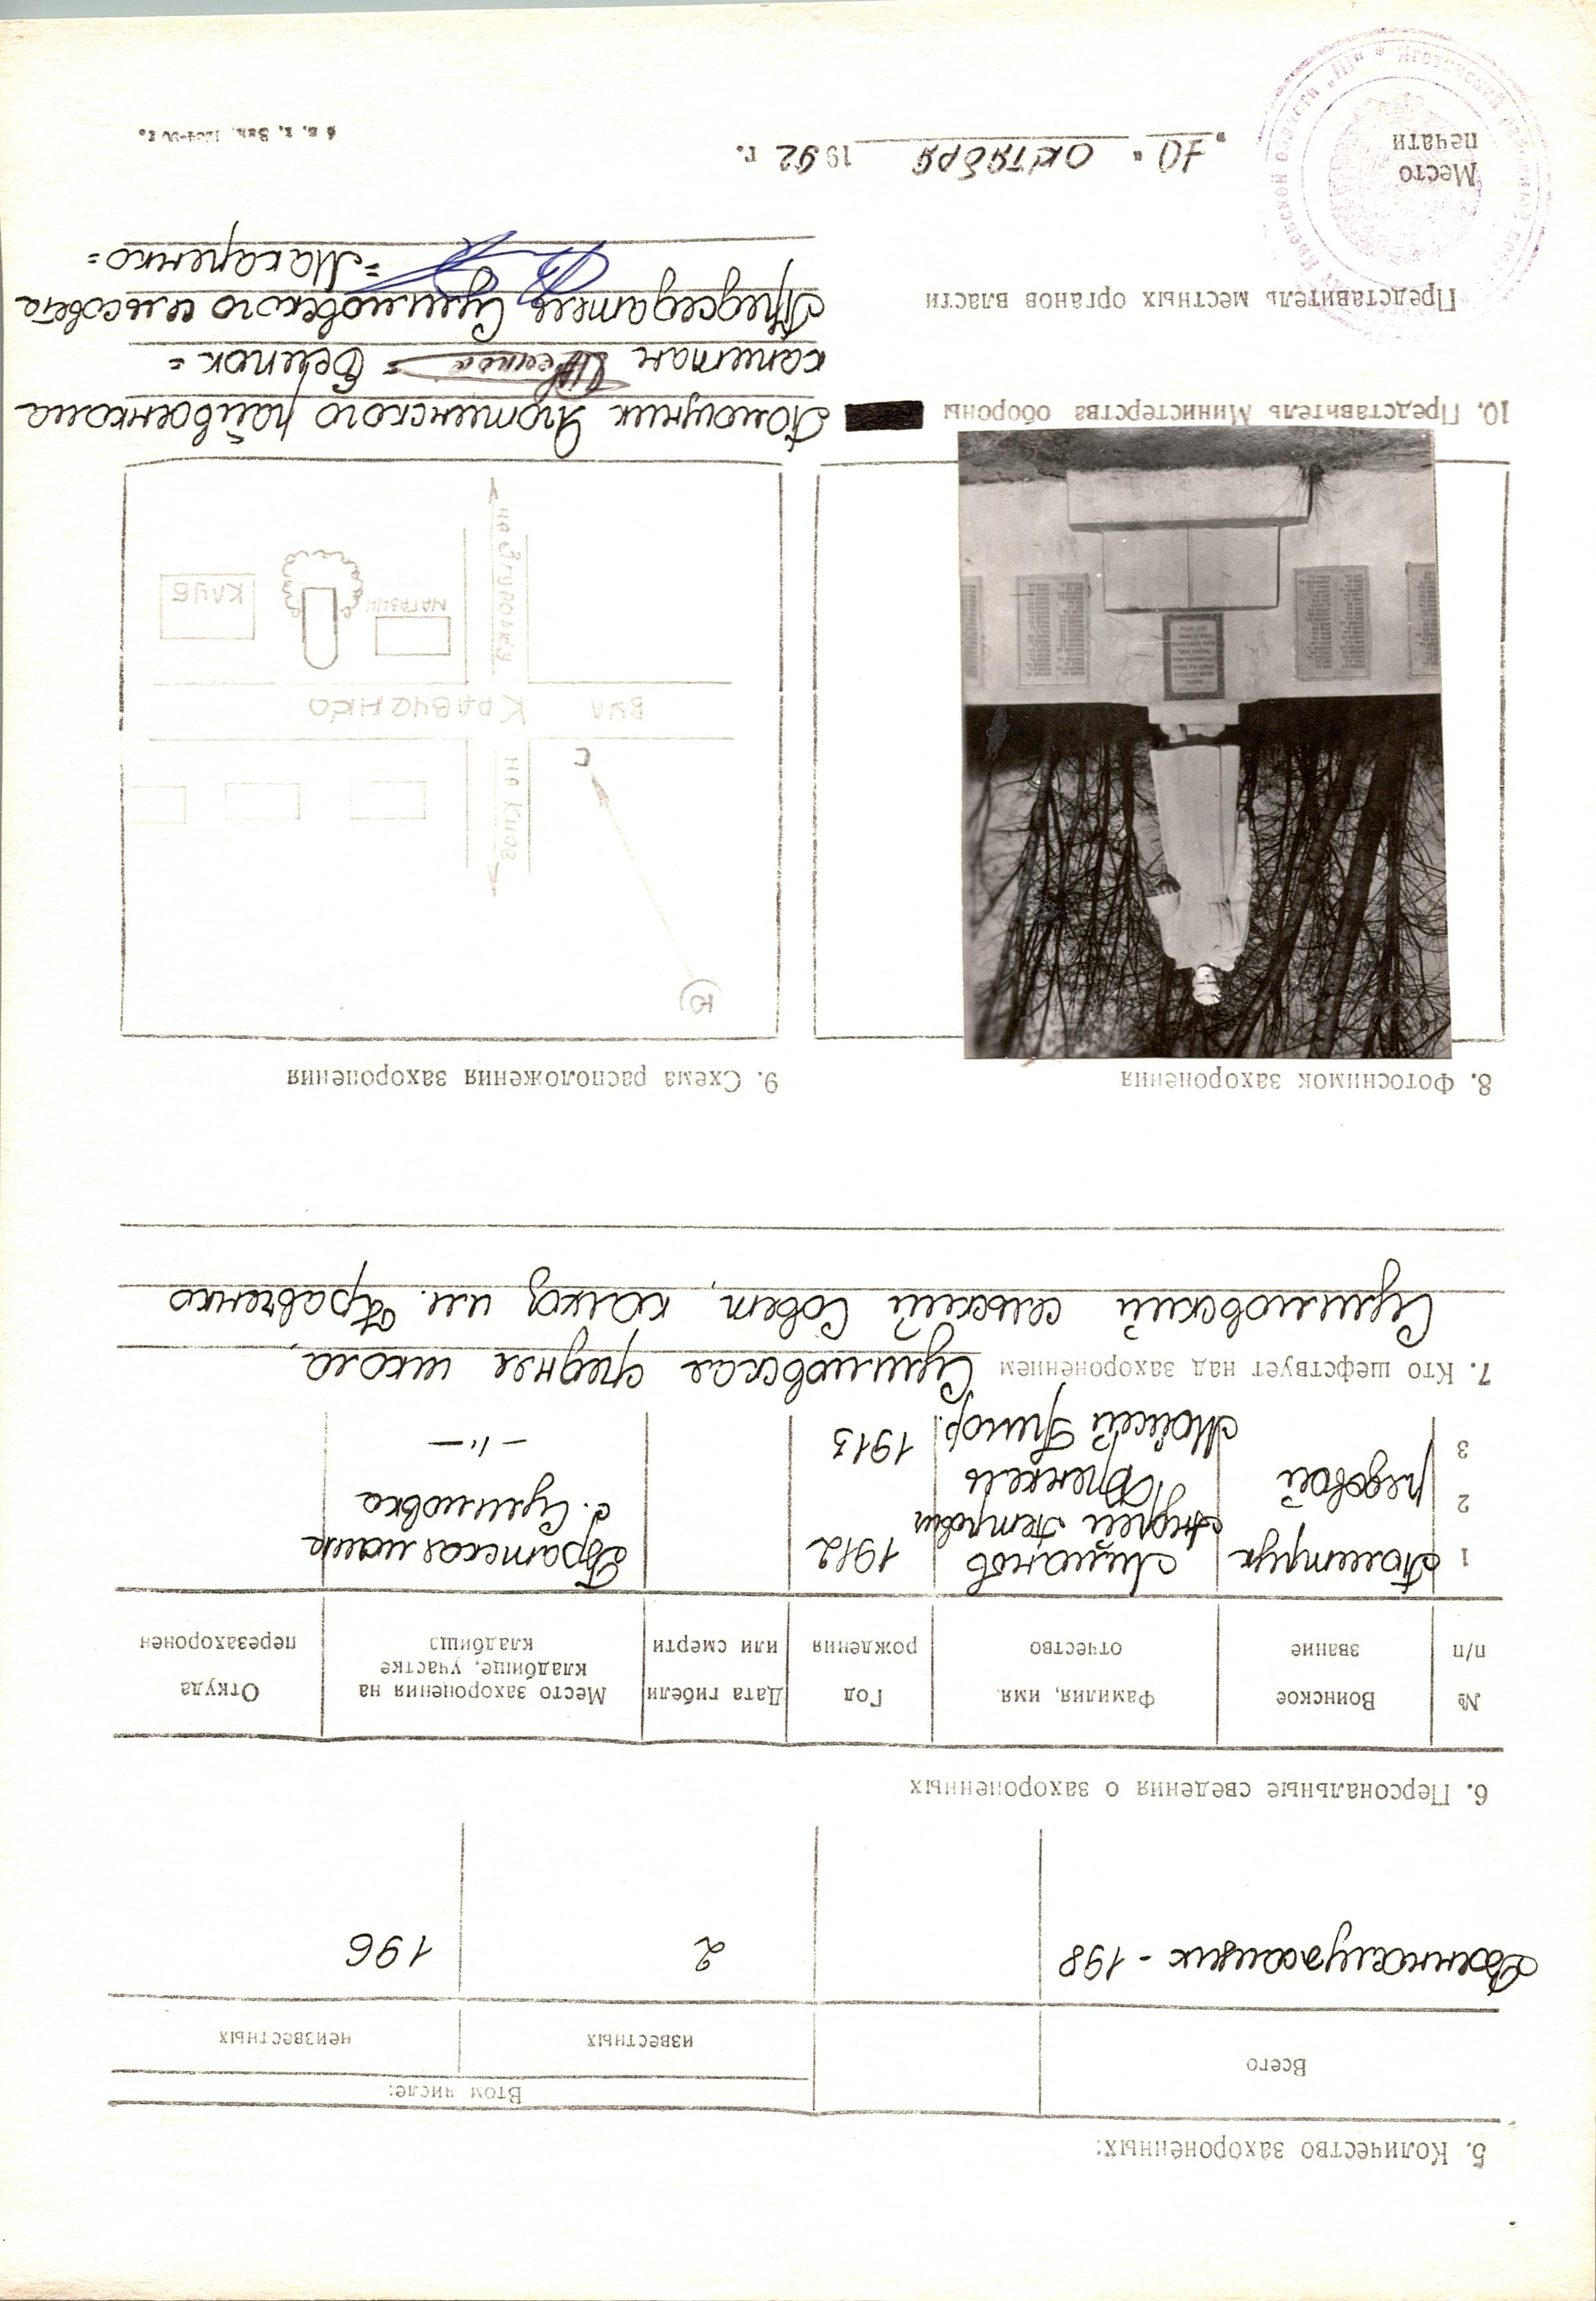 5. Количество захороненных:
Всего
Втом числе:
известных
неизвестных
Военнослужащих - 198
2
196
6. Персональные сведения о захороненных
№ п/п
Воинское звание
Фамилия, имя, отчество
Год рождения
Дата гибели или смерти
Место захоронения на кладбище, участке кладбищ
Откуда перезахоронен
1 Политрук Лиманов Андрей Петрович 1912 Братская могила
2 рядовой Френкель с. Сулимовка
3 Мойсей Григор. 1913 —"—
7. Кто шефствует над захоронением Сулимовская средняя школа,
Сулимовский сельский Совет, колхоз им. Кравченко
8. Фотоснимок захоронения
9. Схема расположения захоронения
Ю
на Киев
С
вул Кравченко
магазин
клуб
на Згуровку
10. Представитель Министерства обороны Помощник Яготинского райвоенкома
капитан = Белик =
Представитель местных органов власти Председатель Сулимовского сельсовета
= Макаренко =
Место
печати
"10" октября 1992 г.